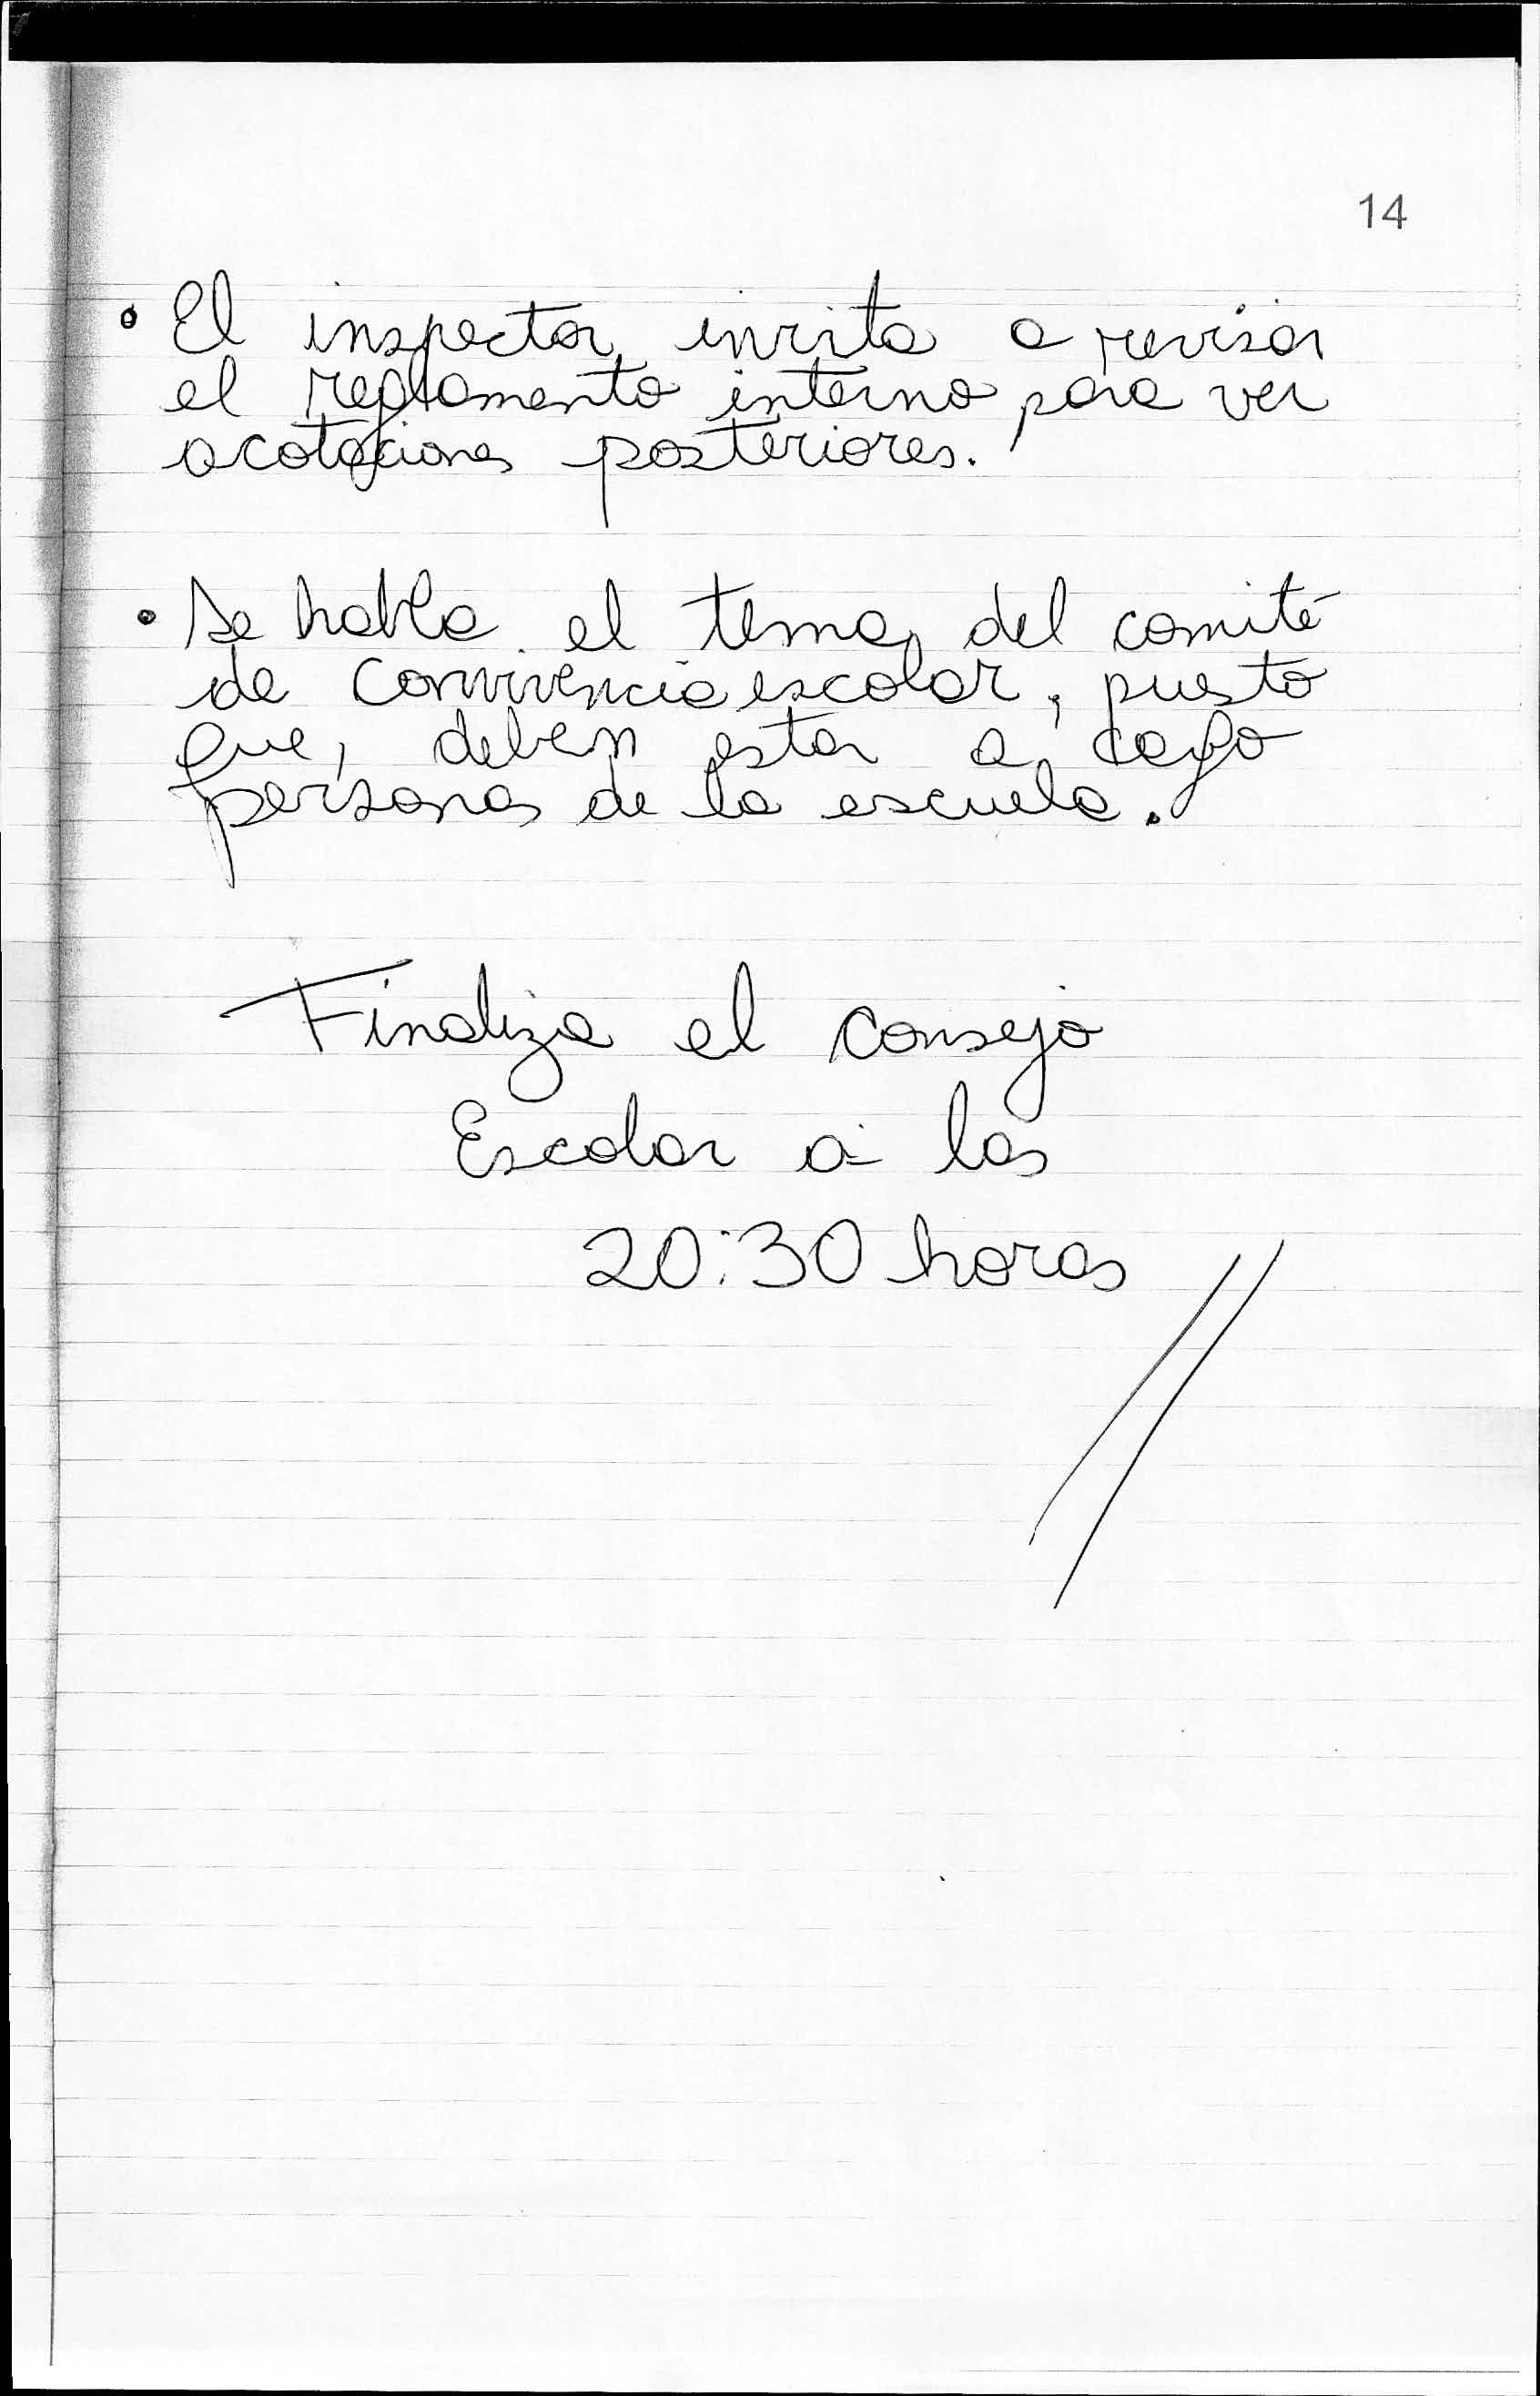 14
• El inspector invita a revisar
el reglamento interno para ver
acotaciones posteriores.
• Se habla el tema del comité
de convivencia escolar, puesto
que, deben estar a cargo
personas de la escuela.
Finaliza el consejo
Escolar a las
20:30 horas